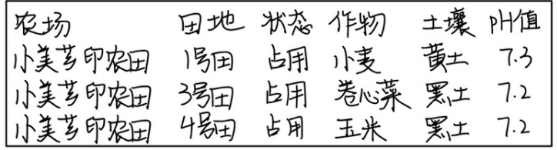 农场 田地 状态 作物 土壤 pH值
小美芝印农田 1号田 占用 小麦 黄土 7.3
小美芝印农田 3号田 占用 卷心菜 黑土 7.2
小美芝印农田 4号田 占用 玉米 黑土 7.2